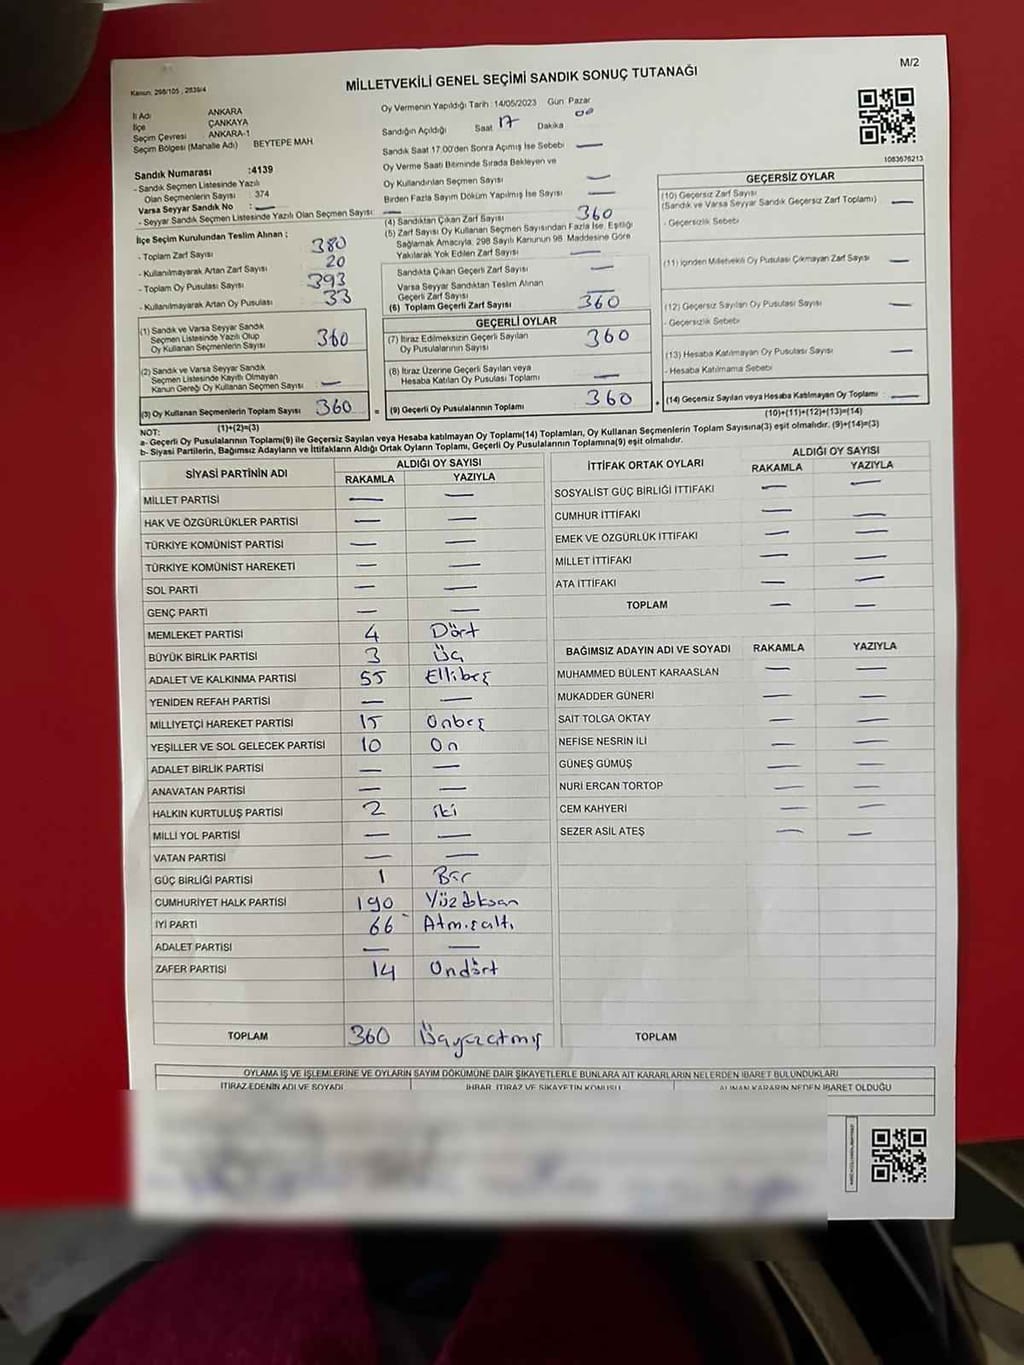 M/2
MİLLETVEKİLİ GENEL SEÇİMİ SANDIK SONUÇ TUTANAĞI
Kanun: 298/105 , 2839/4
İl Adı ANKARA
İlçe ÇANKAYA
Seçim Çevresi ANKARA-1
Seçim Bölgesi (Mahalle Adı) BEYTEPE MAH
Sandık Numarası :4139
- Sandık Seçmen Listesinde Yazılı
Olan Seçmenlerin Sayısı : 374
Varsa Seyyar Sandık No : —
- Seyyar Sandık Seçmen Listesinde Yazılı Olan Seçmen Sayısı: —
İlçe Seçim Kurulundan Teslim Alınan ;
- Toplam Zarf Sayısı 380
- Kullanılmayarak Artan Zarf Sayısı 20
- Toplam Oy Pusulası Sayısı 393
- Kullanılmayarak Artan Oy Pusulası 33
(1) Sandık ve Varsa Seyyar Sandık
Seçmen Listesinde Yazılı Olup
Oy Kullanan Seçmenlerin Sayısı 360
(2) Sandık ve Varsa Seyyar Sandık
Seçmen Listesinde Kayıtlı Olmayan
Kanun Gereği Oy Kullanan Seçmen Sayısı —
(3) Oy Kullanan Seçmenlerin Toplam Sayısı 360
(1)+(2)=(3)
Oy Vermenin Yapıldığı Tarih : 14/05/2023 Gün: Pazar
Sandığın Açıldığı Saat 17 Dakika 00
Sandık Saat 17.00'den Sonra Açımış İse Sebebi —
Oy Verme Saati Bitiminde Sırada Bekleyen ve
Oy Kullandırılan Seçmen Sayısı —
Birden Fazla Sayım Döküm Yapılmış İse Sayısı —
(4) Sandıktan Çıkan Zarf Sayısı 360
(5) Zarf Sayısı Oy Kullanan Seçmen Sayısından Fazla İse, Eşitliği
Sağlamak Amacıyla, 298 Sayılı Kanunun 98. Maddesine Göre
Yakılarak Yok Edilen Zarf Sayısı —
Sandıkta Çıkan Geçerli Zarf Sayısı —
Varsa Seyyar Sandıktan Teslim Alınan
Geçerli Zarf Sayısı —
(6) Toplam Geçerli Zarf Sayısı 360
GEÇERLİ OYLAR
(7) İtiraz Edilmeksizin Geçerli Sayılan
Oy Pusulalarının Sayısı 360
(8) İtiraz Üzerine Geçerli Sayılan veya
Hesaba Katılan Oy Pusulası Toplamı —
= (9) Geçerli Oy Pusulalarının Toplamı 360
1083676213
GEÇERSİZ OYLAR
(10) Geçersiz Zarf Sayısı
(Sandık ve Varsa Seyyar Sandık Geçersiz Zarf Toplamı) —
- Geçersizlik Sebebi
(11) İçinden Milletvekili Oy Pusulası Çıkmayan Zarf Sayısı —
(12) Geçersiz Sayılan Oy Pusulası Sayısı —
- Geçersizlik Sebebi
(13) Hesaba Katılmayan Oy Pusulası Sayısı —
- Hesaba Katılmama Sebebi
+ (14) Geçersiz Sayılan veya Hesaba Katılmayan Oy Toplamı —
(10)+(11)+(12)+(13)=(14)
NOT:
a- Geçerli Oy Pusulalarının Toplamı(9) ile Geçersiz Sayılan veya Hesaba katılmayan Oy Toplamı(14) Toplamları, Oy Kullanan Seçmenlerin Toplam Sayısına(3) eşit olmalıdır. (9)+(14)=(3)
b- Siyasi Partilerin, Bağımsız Adayların ve İttifakların Aldığı Ortak Oyların Toplamı, Geçerli Oy Pusulalarının Toplamına(9) eşit olmalıdır.
SİYASİ PARTİNİN ADI ALDIĞI OY SAYISI
RAKAMLA YAZIYLA
MİLLET PARTİSİ — —
HAK VE ÖZGÜRLÜKLER PARTİSİ — —
TÜRKİYE KOMÜNİST PARTİSİ — —
TÜRKİYE KOMÜNİST HAREKETİ — —
SOL PARTİ — —
GENÇ PARTİ — —
MEMLEKET PARTİSİ 4 Dört
BÜYÜK BİRLİK PARTİSİ 3 Üç
ADALET VE KALKINMA PARTİSİ 55 Ellibeş
YENİDEN REFAH PARTİSİ — —
MİLLİYETÇİ HAREKET PARTİSİ 15 Onbeş
YEŞİLLER VE SOL GELECEK PARTİSİ 10 On
ADALET BİRLİK PARTİSİ — —
ANAVATAN PARTİSİ — —
HALKIN KURTULUŞ PARTİSİ 2 iki
MİLLİ YOL PARTİSİ — —
VATAN PARTİSİ — —
GÜÇ BİRLİĞİ PARTİSİ 1 Bir
CUMHURİYET HALK PARTİSİ 190 Yüzdoksan
İYİ PARTİ 66 Atmışaltı
ADALET PARTİSİ — —
ZAFER PARTİSİ 14 Ondört
TOPLAM 360 Üçyüzatmış
İTTİFAK ORTAK OYLARI ALDIĞI OY SAYISI
RAKAMLA YAZIYLA
SOSYALİST GÜÇ BİRLİĞİ İTTİFAKI — —
CUMHUR İTTİFAKI — —
EMEK VE ÖZGÜRLÜK İTTİFAKI — —
MİLLET İTTİFAKI — —
ATA İTTİFAKI — —
TOPLAM — —
BAĞIMSIZ ADAYIN ADI VE SOYADI RAKAMLA YAZIYLA
MUHAMMED BÜLENT KARAASLAN — —
MUKADDER GÜNERİ — —
SAİT TOLGA OKTAY — —
NEFİSE NESRİN İLİ — —
GÜNEŞ GÜMÜŞ — —
NURİ ERCAN TORTOP — —
CEM KAHYERİ — —
SEZER ASİL ATEŞ — —
TOPLAM
OYLAMA İŞ VE İŞLEMLERİNE VE OYLARIN SAYIM DÖKÜMÜNE DAİR ŞİKAYETLERLE BUNLARA AİT KARARLARIN NELERDEN İBARET BULUNDUKLARI
İTİRAZ EDENİN ADI VE SOYADI İHBAR, İTİRAZ VE ŞİKAYETİN KONUSU ALINAN KARARIN NEDEN İBARET OLDUĞU